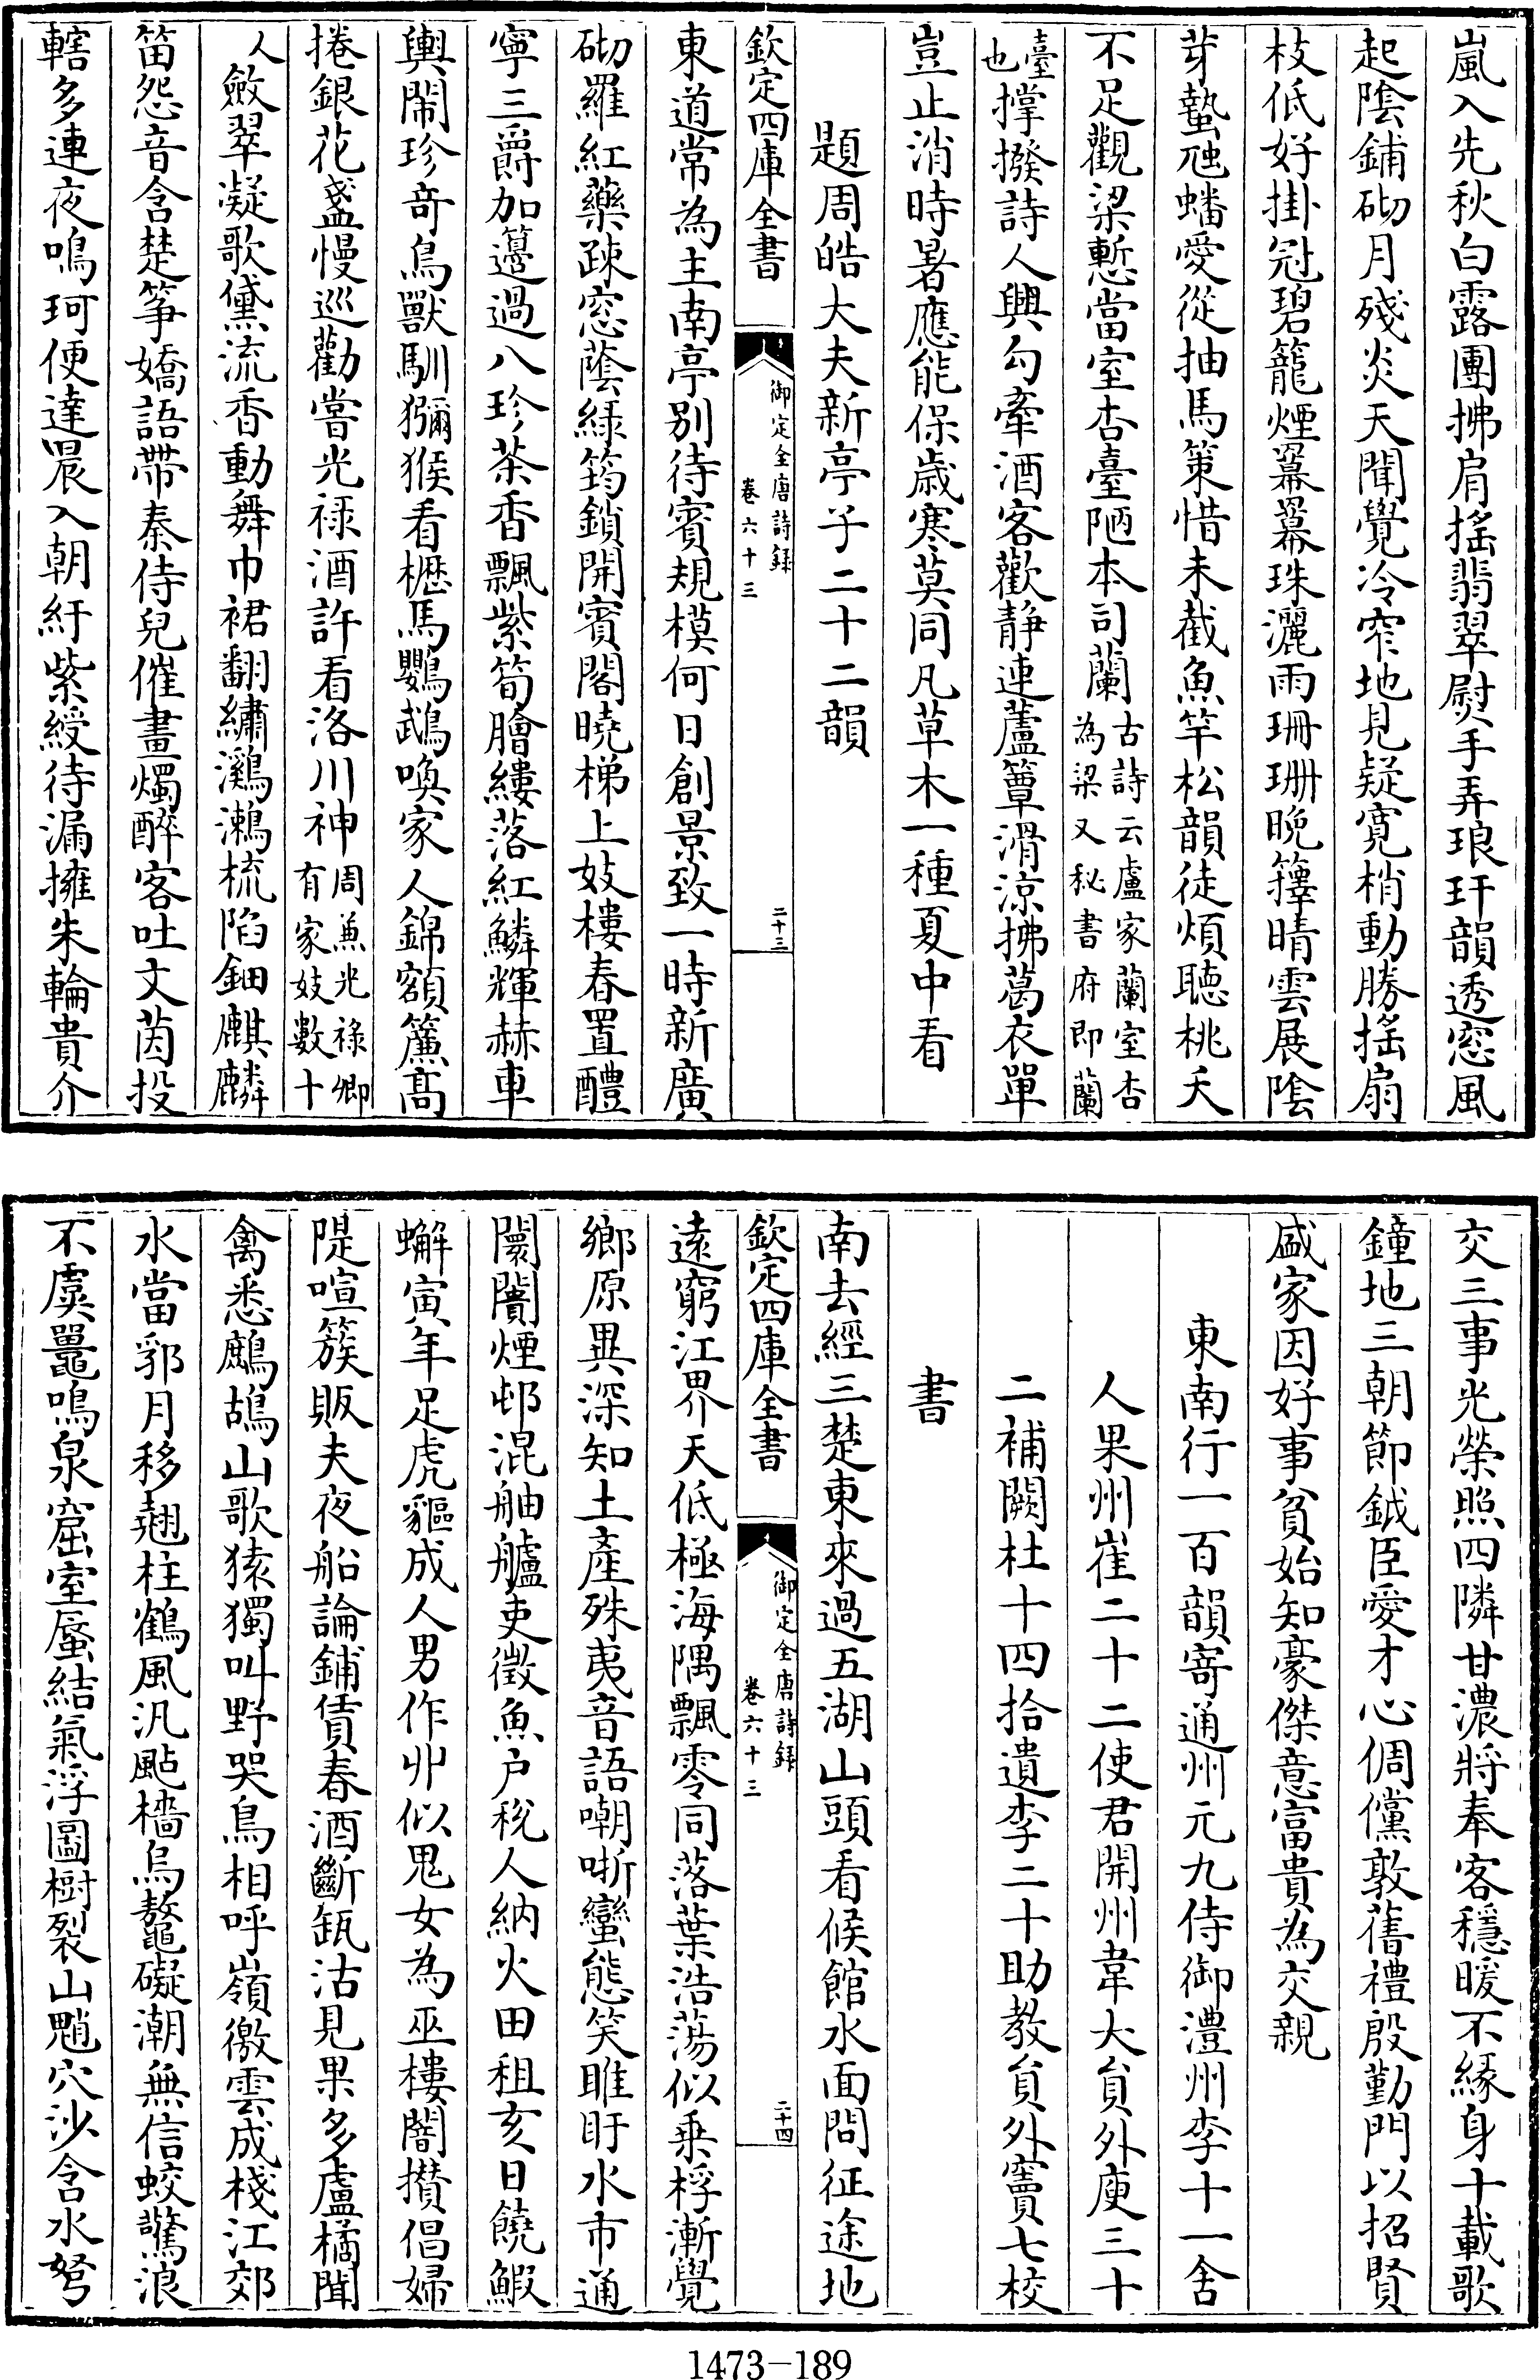 嵐入先秋白露團拂肩搖翡翠熨手弄琅玕韻透窓風
起陰鋪砌月殘炎天聞覺冷窄地見疑寛梢動勝搖扇
枝低好掛冠碧籠煙羃羃珠灑雨珊珊晩籜晴雲展陰
芽蟄虺蟠愛從抽馬策惜未截魚竿松韻徒煩聽桃夭
不足觀梁慙當室杏臺陋本司蘭古詩云盧家蘭室杏為梁又秘書府即蘭
臺也撑撥詩人興勾牽酒客歡静連蘆簟滑涼拂葛衣單
豈止消時暑應能保歳寒莫同凡草木一種夏中看
題周皓大夫新亭子二十二韻
欽定四庫全書
御定全唐詩録
卷六十三
二十三
東道常為主南亭别待賓規模何日創景致一時新廣
砌羅紅藥疎窓蔭緑筠鎖開賔閣曉梯上妓樓春置醴
寧三爵加籩過八珍茶香飄紫筍膾縷落紅鱗輝赫車
輿鬧珍竒鳥獸馴獼猴看櫪馬鸚鵡喚家人錦額簾髙
捲銀花盞慢巡勸嘗光禄酒許看洛川神周兼光禄卿有家妓數十
人斂翠凝歌黛流香動舞巾裙翻繡鸂鶒梳陷鈿麒麟
笛怨音含楚筝嬌語帶秦侍兒催畫燭醉客吐文茵投
轄多連夜鳴珂便達晨入朝紆紫綬待漏擁朱輪貴介
交三事光榮照四隣甘濃將奉客穩暖不緣身十載歌
鐘地三朝節鉞臣愛才心倜儻敦舊禮殷勤門以招賢
盛家因好事貧始知豪傑意富貴為交親
東南行一百韻寄通州元九侍御澧州李十一舍
人果州崔二十二使君開州韋大員外庾三十
二補闕杜十四拾遺李二十助教員外竇七校
書
南去經三楚東來過五湖山頭看候館水面問征途地
欽定四庫全書
御定全唐詩録
卷六十三
二十四
遠窮江界天低極海隅飄零同落葉浩蕩似乗桴漸覺
鄉原異深知土產殊夷音語嘲哳蠻態笑睢盱水市通
闤闠煙邨混舳艫吏徵魚户税人納火田租亥日饒鰕
蠏寅年足虎貙成人男作丱似鬼女為巫樓闇攅倡婦
隄喧簇販夫夜船論鋪賃春酒斷缻沽見果多盧橘聞
禽悉鷓鴣山歌猿獨叫野哭鳥相呼嶺徼雲成棧江郊
水當郛月移翹柱鶴風汎颭檣烏鼇礙潮無信蛟驚浪
不虞鼉鳴泉窟室蜃結氣浮圖樹裂山魈穴沙含水弩
1473-189